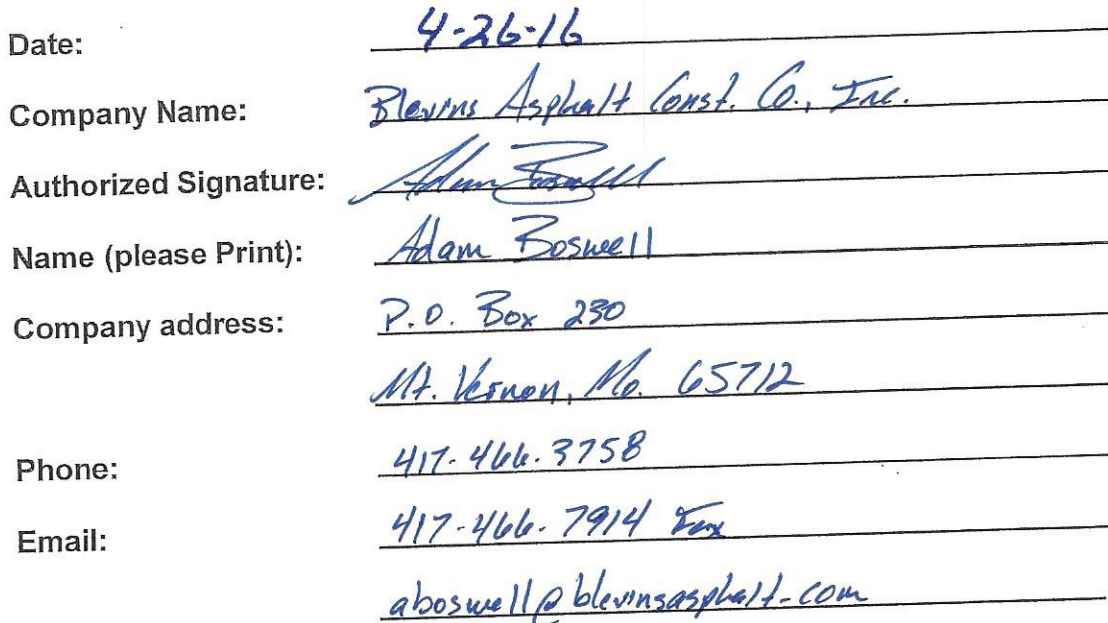 Date: 4-26-16
Company Name: Blevins Asphalt Const. Co., Inc.
Authorized Signature: Adam Boswell
Name (please Print): Adam Boswell
Company address: P.O. Box 230
Mt. Vernon, Mo. 65712
Phone: 417-466-3758
Email: 417-466-7914 Fax
aboswell@blevinsasphalt.com